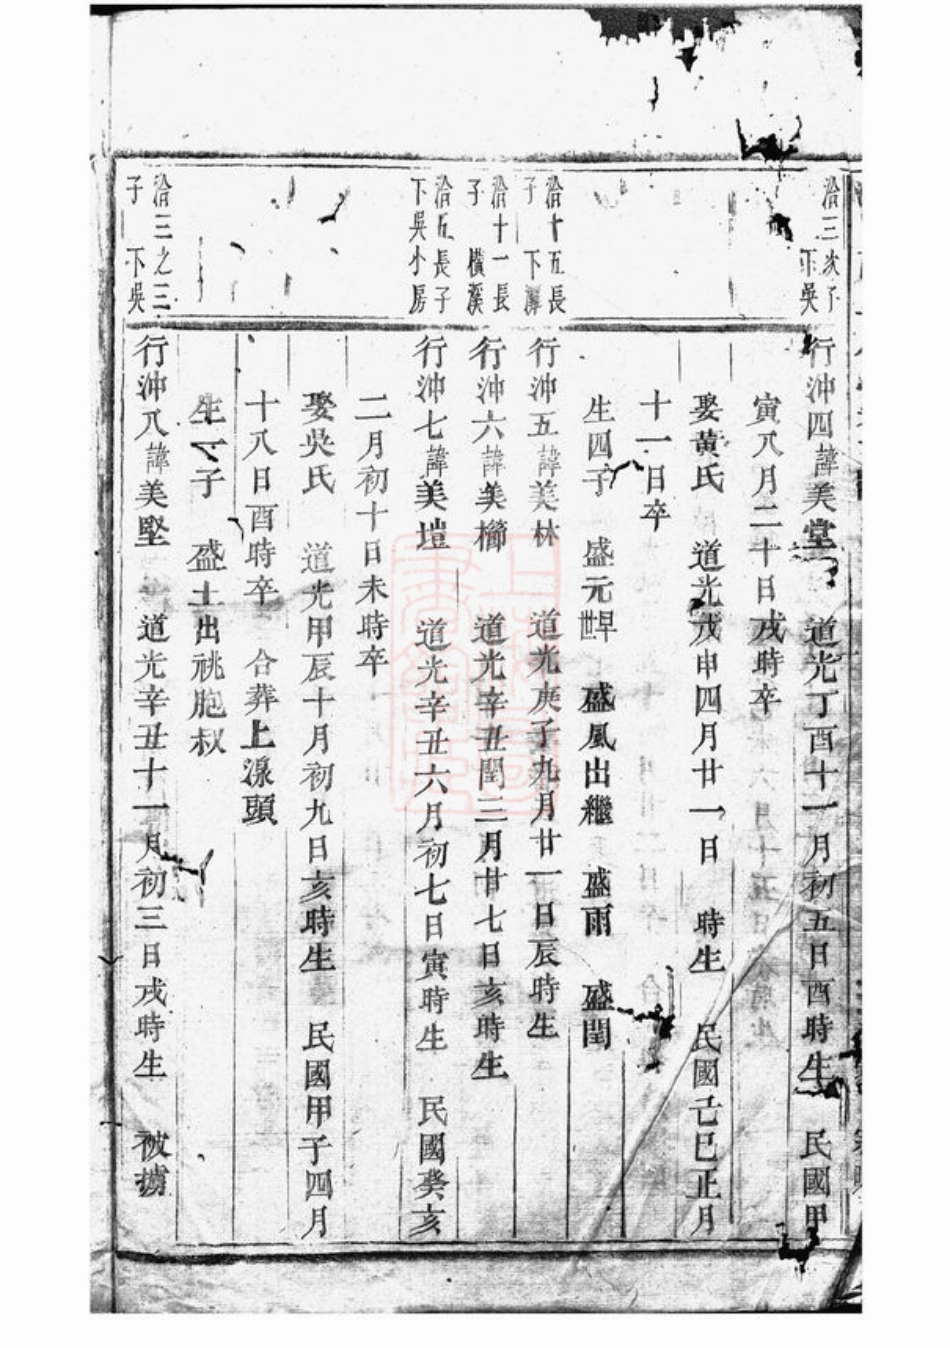 洽三次子
下吳
行沖四諱美堂 道光丁酉十一月初五日酉時生 民國甲
寅八月二十日戌時卒
娶黃氏 道光戊申四月廿一日 時生 民國己巳正月
十一日卒
生四子 盛元世早 盛風出繼 盛雨 盛閏
洽十五長
子 下
行沖五諱美林 道光庚子九月廿一日辰時生
洽十一長
子 橫溪
行沖六諱美櫛 道光辛丑閏三月廿七日亥時生
洽五長子
下吳小房
行沖七諱美塏 道光辛丑六月初七日寅時生 民國癸亥
二月初十日未時卒
娶吳氏 道光甲辰十月初九日亥時生 民國甲子四月
十八日酉時卒 合葬上湶頭
生一子 盛土出祧胞叔
洽三之三
子 下吳
行沖八諱美堅 道光辛丑十一月初三日戌時生 被擄